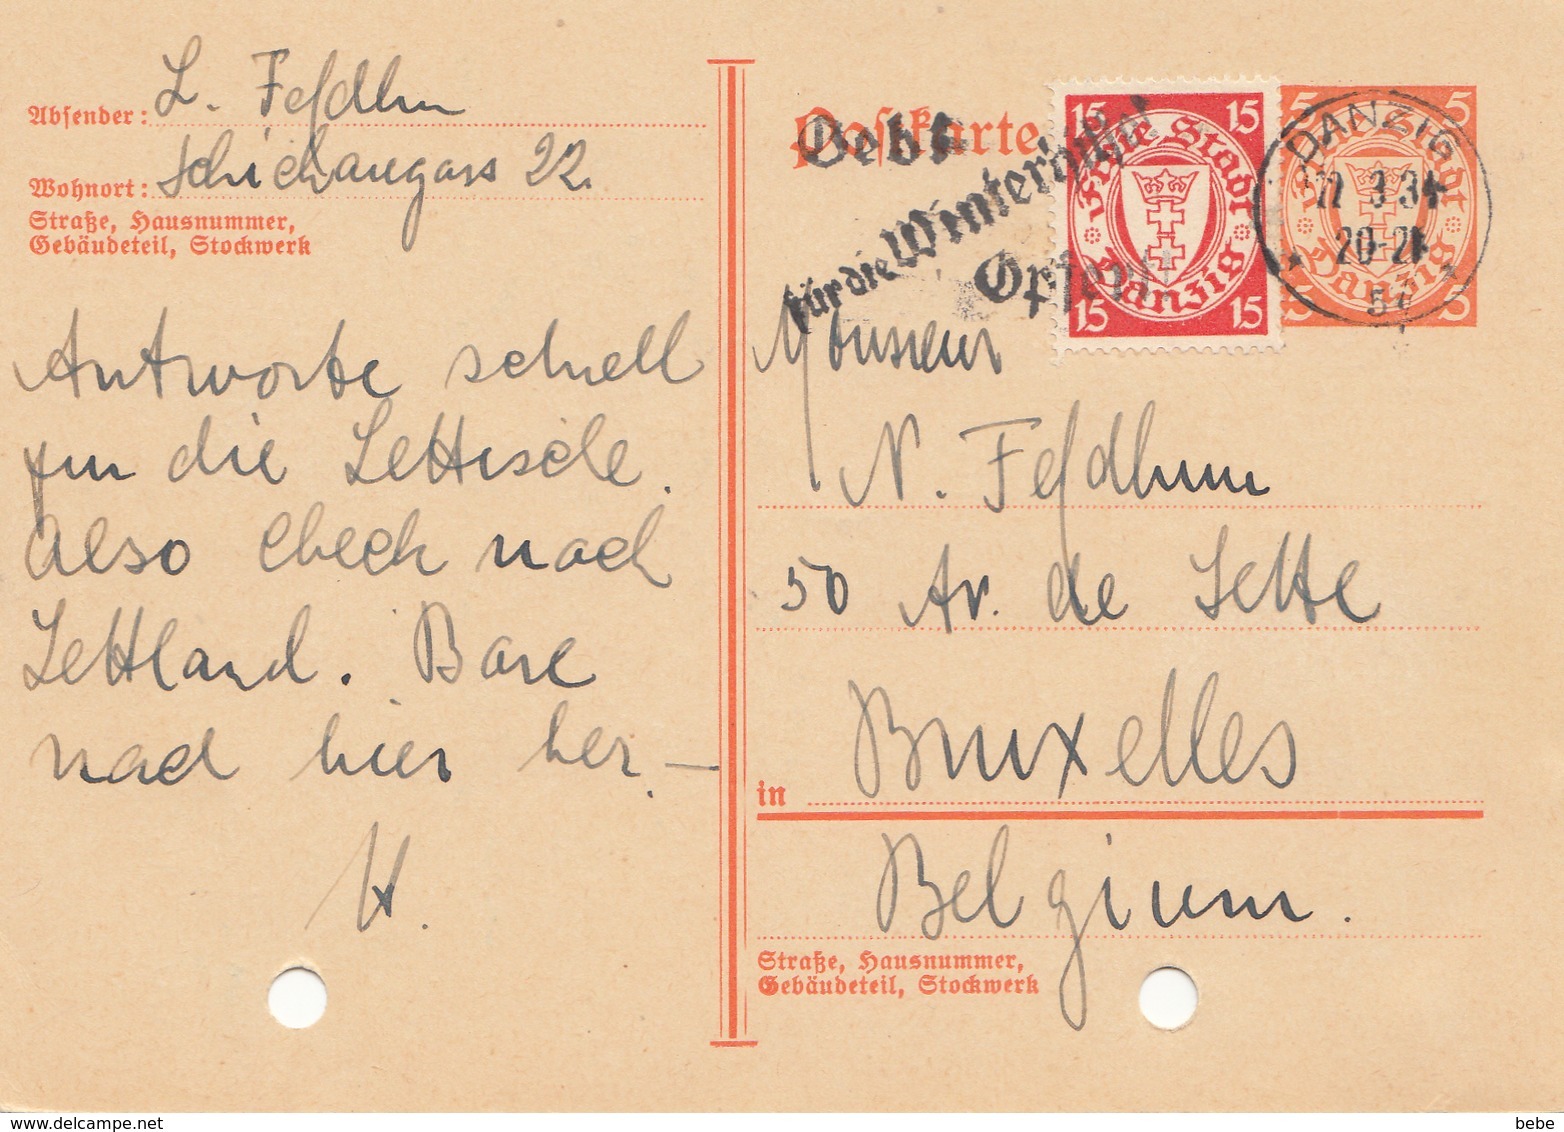 Absender: L. Feldhun
Wohnort: Schichaugass 22.
Straße, Hausnummer,
Gebäudeteil, Stockwerk
Antworte schnell
für die Lettische.
Also Check nach
Lettland. Bare
nach hier her. —
H.
Postkarte
Gebt
für die Winterhilfe!
Opfert!
15 15
Freie Stadt
Danzig
15 15
5 5
Freie Stadt
Danzig
5 5
DANZIG
22 3 34
20-21
* 5 *
Monsieur
N. Feldhun
50 Av. de Sette
Bruxelles
in
Belgium.
Straße, Hausnummer,
Gebäudeteil, Stockwerk
bebe